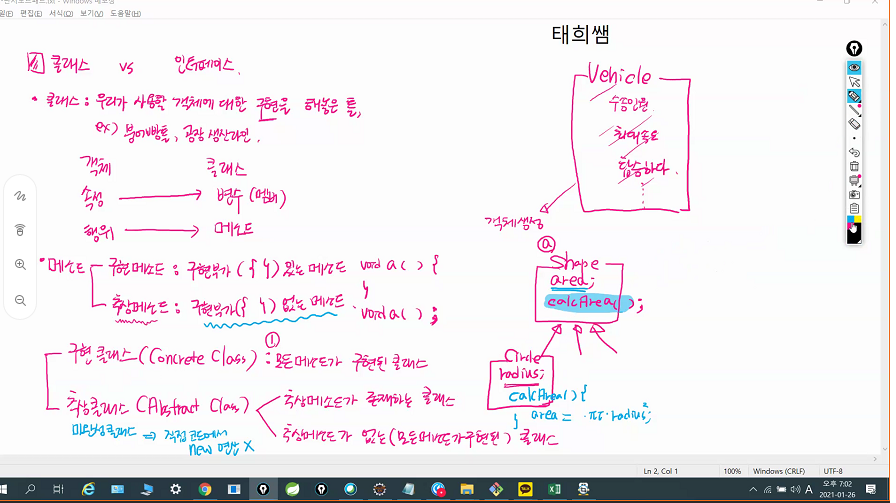 파일(F) 편집(E) 서식(O) 보기(V) 도움말(H)
태희쌤
클래스 vs 인터페이스.
• 클래스 : 우리가 사용할 객체에 대한 구현을 해놓은 틀,
ex) 붕어빵틀, 공장 생산라인.
객체 클래스
속성 → 변수 (멤버)
행위 → 메소드
• 메소드
구현메소드 : 구현부가 ({ }) 있는 메소드 void a( ) {
}
추상메소드 : 구현부가({ }) 없는 메소드. void a( ) ;
①
구현 클래스 (Concrete Class) : 모든 메소드가 구현된 클래스
추상클래스 (Abstract Class)
추상메소드가 존재하는 클래스
추상메소드가 없는 (모든메소드가구현된) 클래스
미완성클래스 ⇒ 직접 코드에서
new 연산 X
Vehicle
수송인원
최대속도
탑승하다.
객체생성
ⓐ
Shape
area;
calcArea( );
Circle
radius;
calcArea( ) {
} area = π · radius²;
Ln 2, Col 1 100% Windows (CRLF) UTF-8
A 오후 7:02
2021-01-26